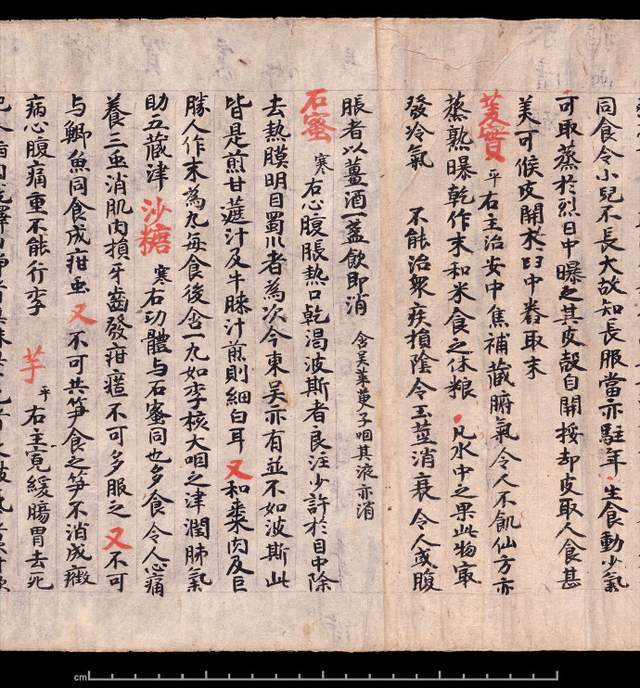 同食令小兒不長大故知長服當亦駐年生食動少氣
可取蒸於烈日中曝之其皮殼自開挼却皮取人食甚
美可候皮開於臼中舂取末
菱實 平 右主治安中焦補藏腑氣令人不飢仙方亦
蒸熟曝乾作末和米食之休粮 凡水中之果此物冣
發冷氣 不能治衆疾損陰令玉莖消衰令人或腹
脹者以薑酒一盞飲即消 含吳茱萸子咽其液亦消
石蜜 寒 右心腹脹熱口乾渴波斯者良注少許於目中除
去熱膜明目蜀川者為次今東吳亦有並不如波斯此
皆是煎甘蔗汁及牛膝汁煎則細白耳 又和棗肉及巨
勝人作末為丸每食後含一丸如李核大咽之津潤肺氣
助五藏津 沙糖 寒 右功體与石蜜同也多食令人心痛
養三虫消肌肉損牙齒發疳不可多服之 又不可
与鯽魚同食成疳虫 又不可共笋食之笋不消成癥
病心腹痛重不能行李 芋 平 右主寬緩腸胃去死
cm